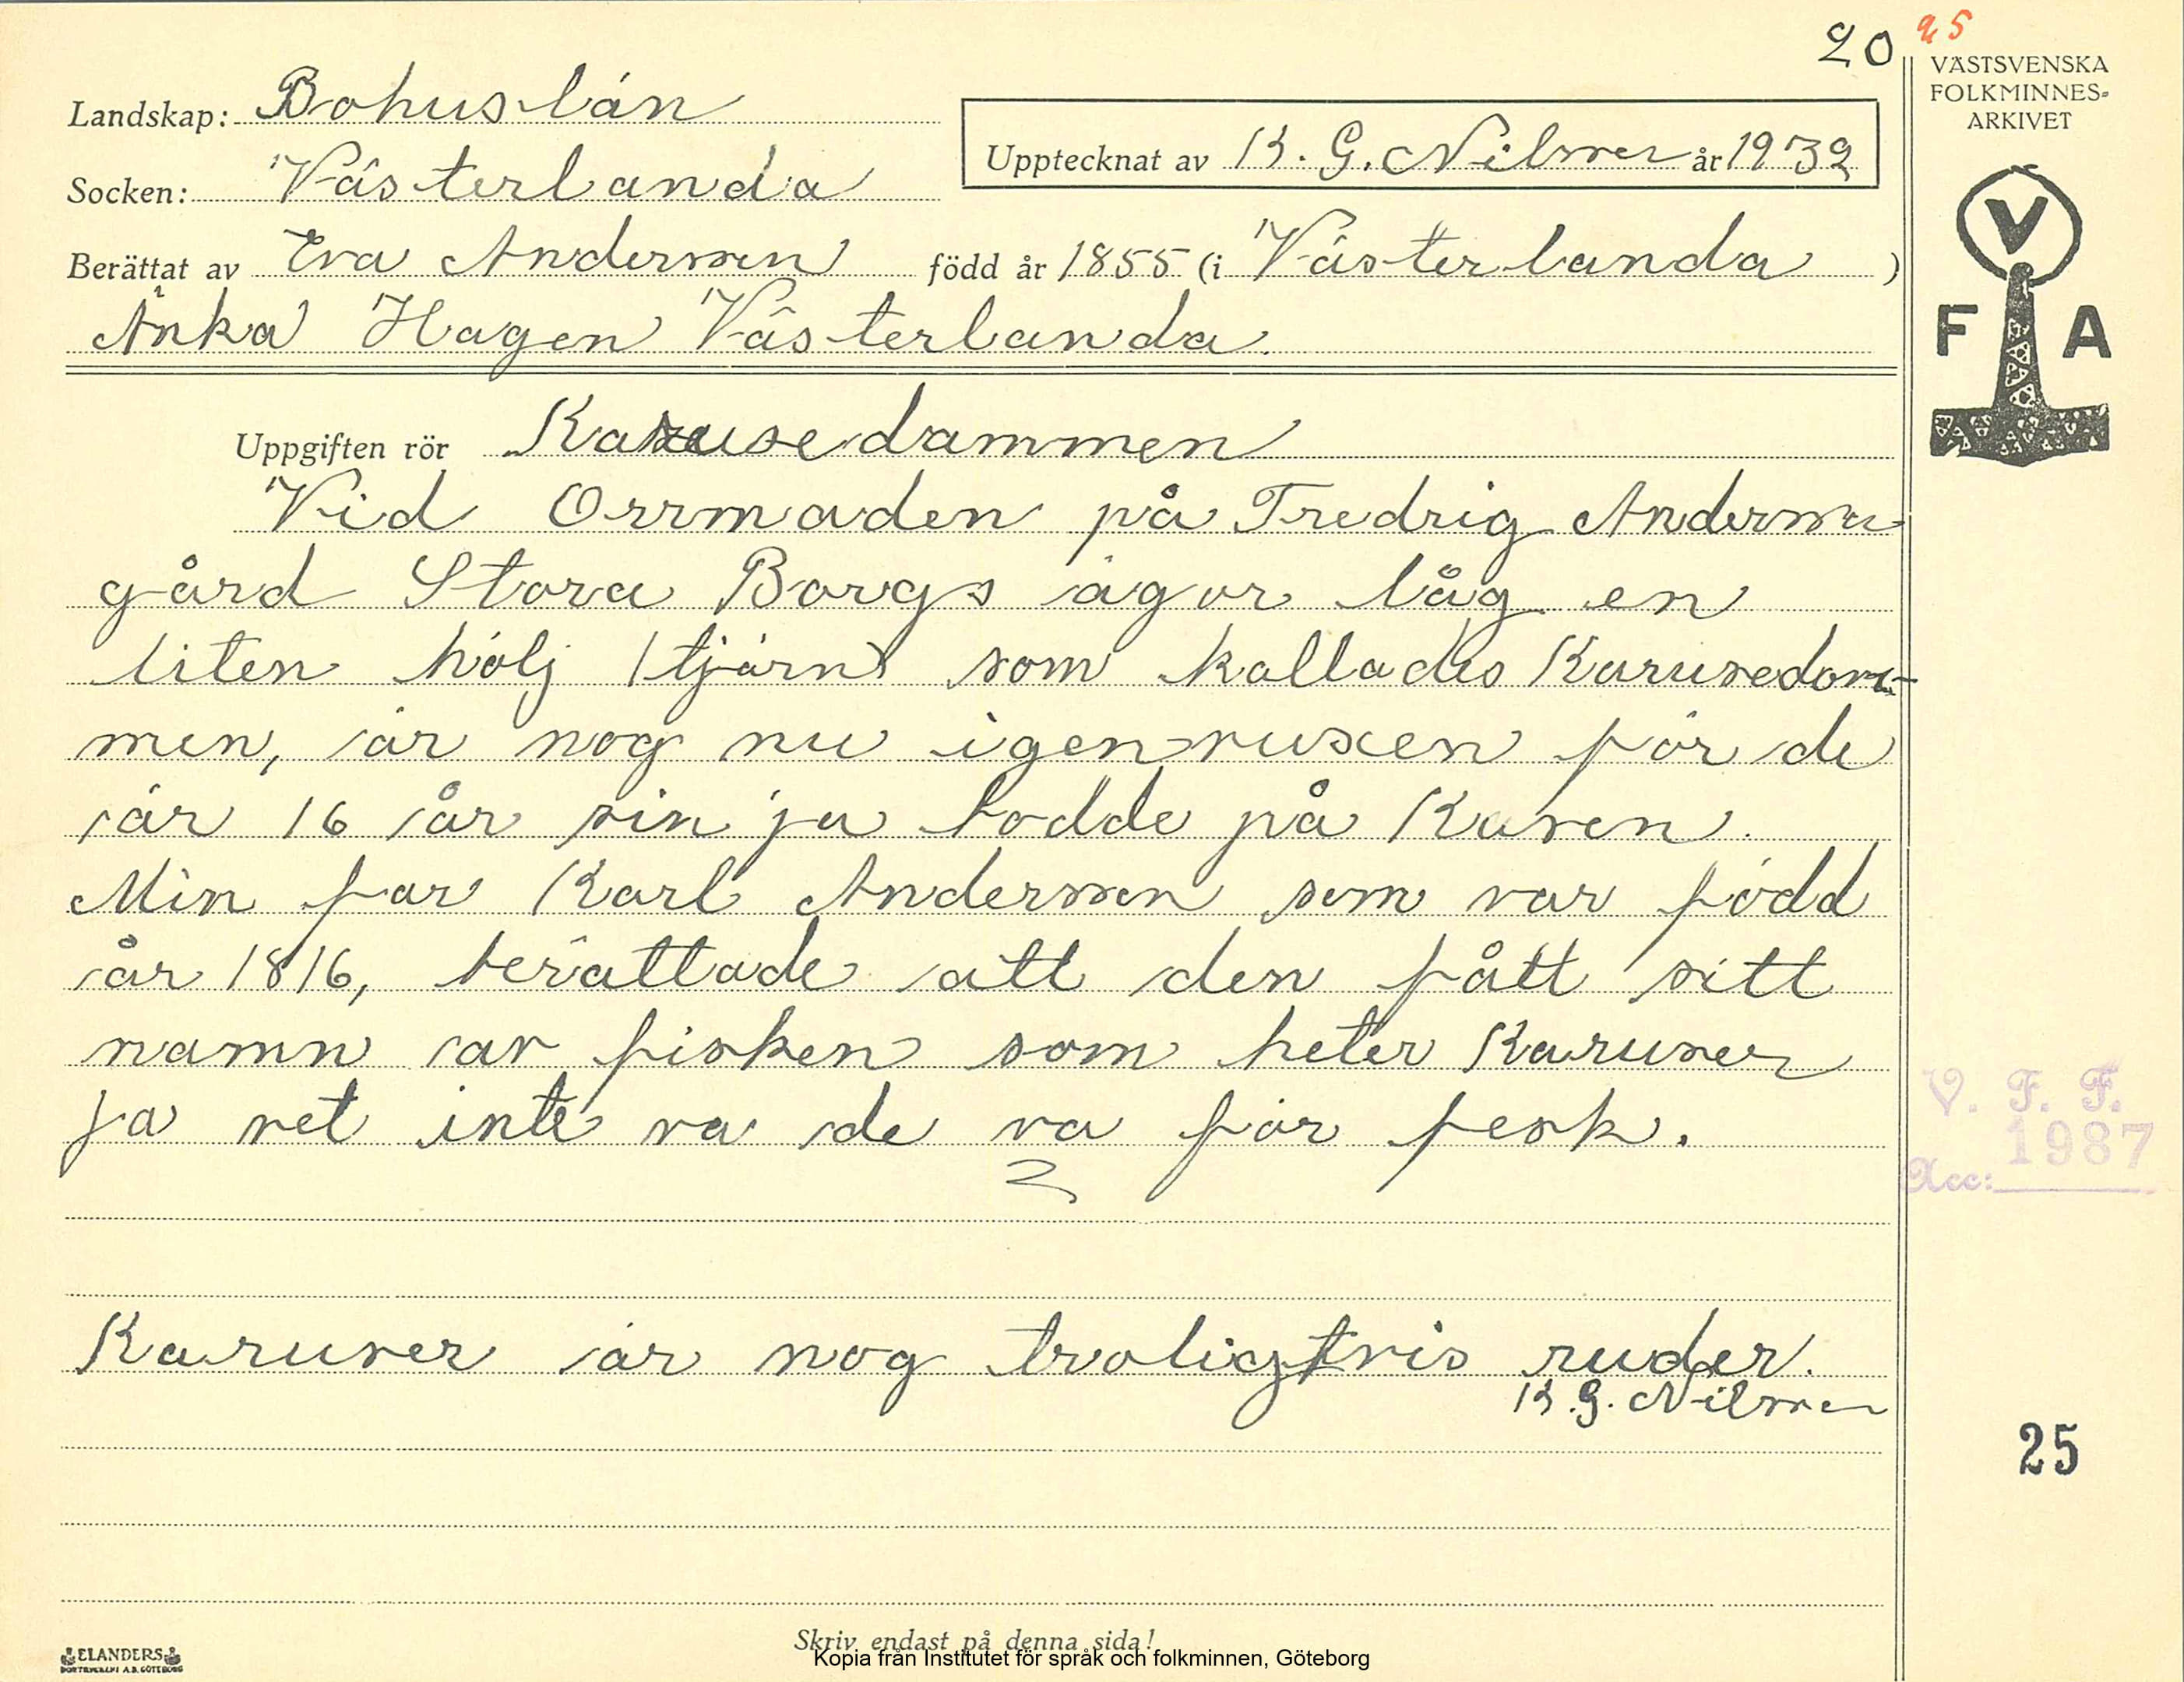 20 25
VÄSTSVENSKA
FOLKMINNES-
ARKIVET
Landskap: Bohuslän
Upptecknat av K. G. Nilsson år 1932
Socken: Västerlanda
Berättat av Eva Andersson född år 1855 (i Västerlanda)
Änka Hagen Västerlanda.
V
F A
Uppgiften rör Karusedammen
Vid Orrmaden på Fredrig Anderssa
gård Stora Borgs ägor låg en
liten hölj (tjärn) som kallades Karusedam-
men, är nog nu igenvuxen för de
är 16 år sin ja bodde på Kasen.
Min far Karl Andersson som var född
år 1816, berättade att den fått sitt
namn av fisken som heter Karuser
ja vet inte va de va för fesk.
Karuser är nog troligtvis ruder.
K.G. Nilsson
V. F. F.
1987
Acc:
25
Skriv endast på denna sida!
Kopia från Institutet för språk och folkminnen, Göteborg
ELANDERS
BOKTRYCKERI A.B. GÖTEBORG